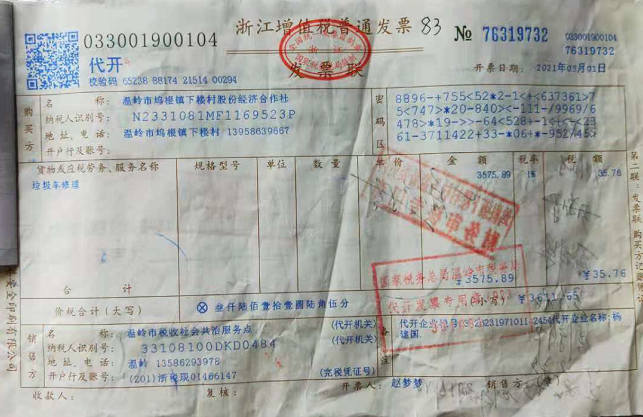 033001900104
浙江增值税普通发票 83
№ 76319732
033001900104
76319732
代开
发票联
校验码 65238 88174 21514 00294
开票日期: 2021年03月01日
购买方
名称: 温岭市坞根镇下楼村股份经济合作社
纳税人识别号: N2331081MF1169523P
地址、电话: 温岭市坞根镇下楼村 13958639667
开户行及账号:
密码区
8896-+755<52*2-1<+<637361>7
5<747>*20-840><-111-/9969/6
61-3711422+33-*06+*-952/45>
货物或应税劳务、服务名称 规格型号 单位 数量 单价 金额 税率 税额
垃圾车修理 3575.89 1% 35.76
合计 ¥3575.89 ¥35.76
价税合计（大写） ⊗ 叁仟陆佰壹拾壹圆陆角伍分 (小写) ¥3611.65
销售方
名称: 温岭市税收社会共治服务点 (代开机关)
纳税人识别号: 33108100DKD0484 (代开机关)
地址、电话: 温岭 13586293978
开户行及账号: (201)浙税现01466147 (完税凭证号)
备注
代开企业名称:杨
建国
收款人: 复核: 开票人: 赵梦梦 销售方:(章)
第二联 发票联 购买方记账凭证